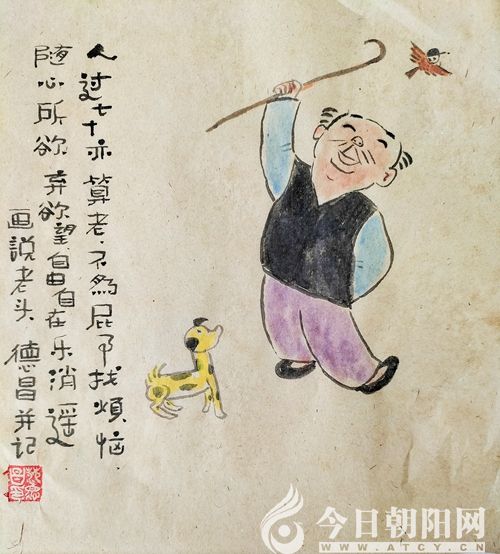 人过七十亦算老.不為屁找煩恼.
随心所欲弃欲望.自由自在乐消遥
画説老头 德昌并记
今日朝阳网
WWW.ATCY.CN